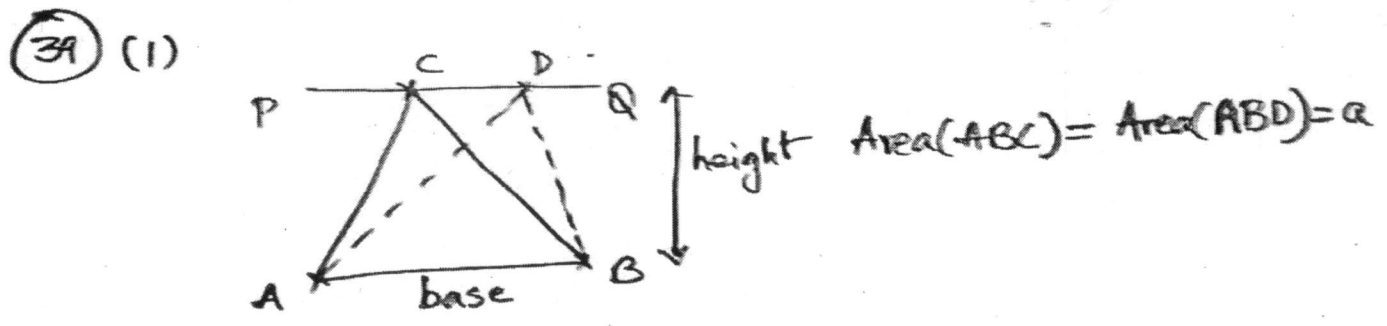 39 (1)
C D
P Q
height Area(ABC)= Area(ABD)=a
A B
base